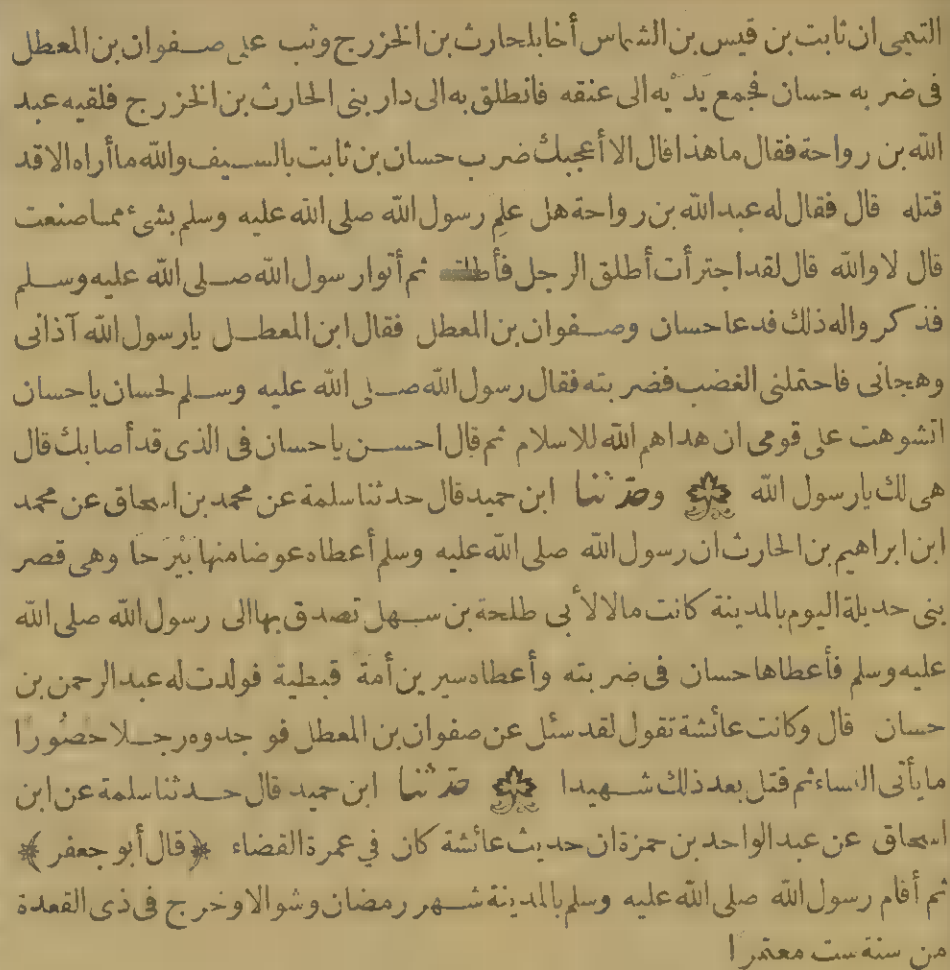 التيمى ان ثابت بن قيس بن الشماس أخا بلحارث بن الخزرج وثب على صفوان بن المعطل
فى ضربه حسان فجمع يَدَيْه الى عنقه فانطلق به الى دار بنى الحارث بن الخزرج فلقيه عبد
الله بن رواحة فقال ما هذا قال الا أعجبك ضرب حسان بن ثابت بالسيف والله ما أراه الا قد
قتله قال فقال له عبد الله بن رواحة هل علِم رسول الله صلى الله عليه وسلم بشئ مما صنعت
قال لا والله قال لقد اجترأت أطلق الرجل فأطلقه ثم أتوا رسول الله صلى الله عليه وسلم
فذكر واله ذلك فدعا حسان وصفوان بن المعطل فقال ابن المعطل يا رسول الله آذانى
وهجانى فاحتملنى الغضب فضربته فقال رسول الله صلى الله عليه وسلم لحسان يا حسان
اتشوهت على قومى ان هداهم الله للاسلام ثم قال احسن يا حسان فى الذى قد أصابك قال
هى لك يا رسول الله وحدثنا ابن حميد قال حدثنا سلمة عن محمد بن اسحاق عن محمد
ابن ابراهيم بن الحارث ان رسول الله صلى الله عليه وسلم أعطاه عوضا منها بَيْرَحا وهى قصر
بنى حديلة اليوم بالمدينة كانت مالا لأبى طلحة بن سهل تصدق بها الى رسول الله صلى الله
عليه وسلم فأعطاها حسان فى ضربته وأعطاه سيرين أمة قبطية فولدت له عبد الرحمن بن
حسان قال وكانت عائشة تقول لقد سئل عن صفوان بن المعطل فوجدوه رجلا حصُورا
ما يأتى النساء ثم قتل بعد ذلك شهيدا حدثنا ابن حميد قال حدثنا سلمة عن ابن
اسحاق عن عبد الواحد بن حمزة ان حديث عائشة كان في عمرة القضاء ﴿قال أبو جعفر﴾
ثم أقام رسول الله صلى الله عليه وسلم بالمدينة شهر رمضان وشوالا وخرج فى ذى القعدة
من سنة ست معتمرا